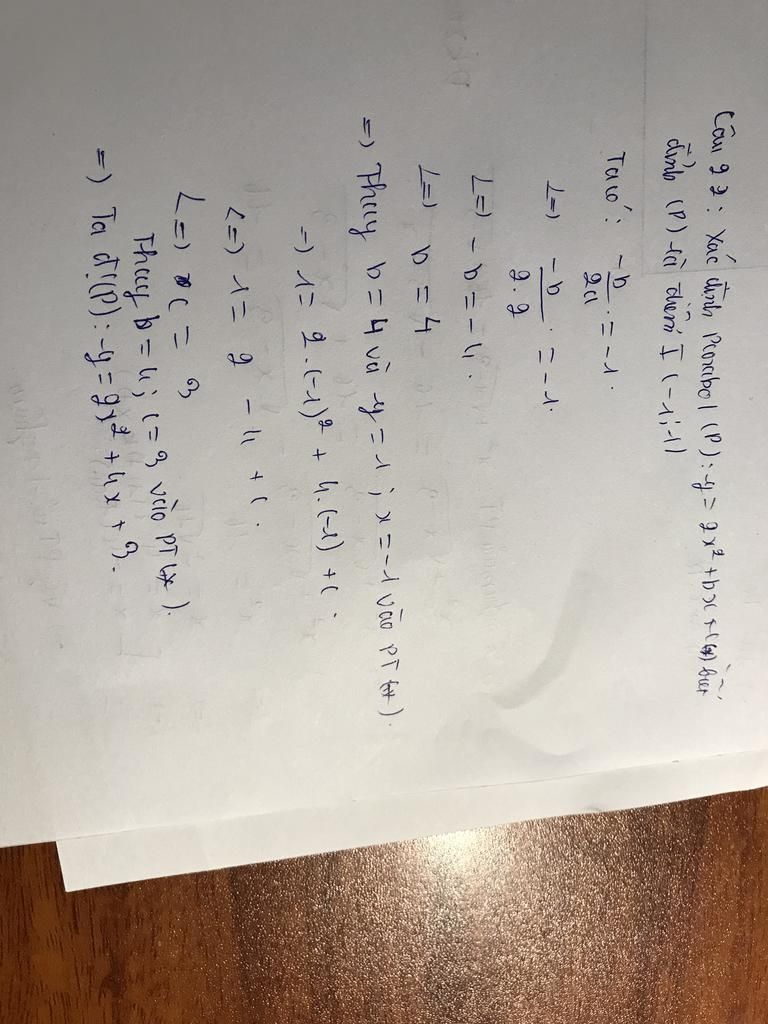 Câu 22: Xác định Parabol (P): y = 2x² + bx + c (*) biết
đỉnh (P) là điểm I (-1;1)
Ta có: -b/2a = -1.
<=> -b/2.2 = -1.
<=> -b = -4.
<=> b = 4
=> Thay b = 4 và y = 1; x = -1 vào PT (*).
=> 1 = 2.(-1)² + 4.(-1) + c.
<=> 1 = 2 - 4 + c.
<=> c = 3
Thay b = 4; c = 3 vào PT (*).
=> Ta đc (P): y = 2x² + 4x + 3.